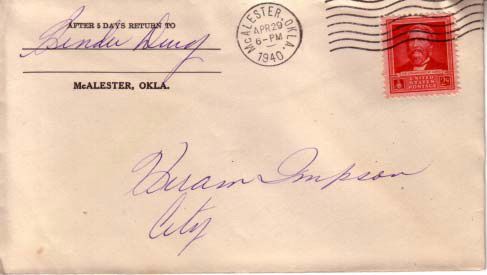 AFTER 5 DAYS RETURN TO
Bender Drug
McALESTER, OKLA.
McALESTER, OKLA.
APR 29
6-PM
1940
UNITED
STATES
POSTAGE
Hiram Impson
City